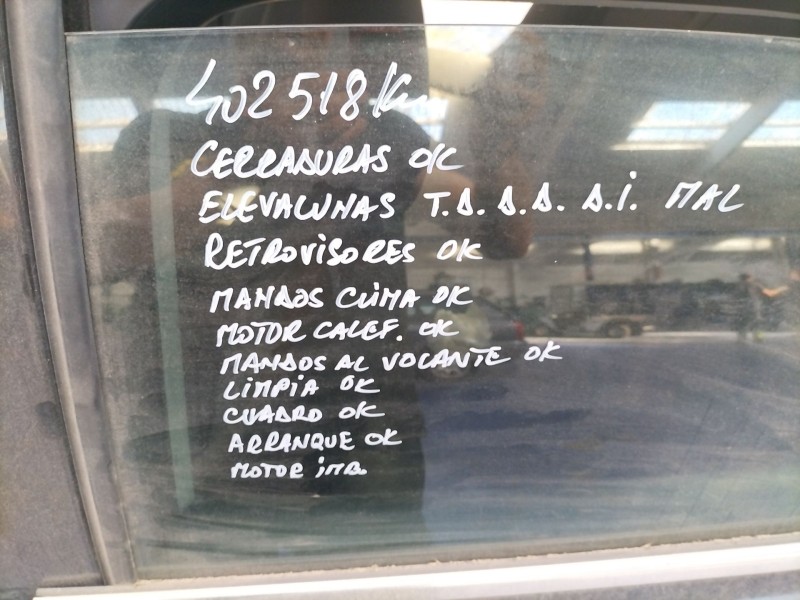 402518 Km
CERRADURAS OK
ELEVALUNAS T.D. D.D. D.I. MAL
RETROVISORES OK
MANDOS CLIMA OK
MOTOR CALEF. OK
MANDOS AL VOLANTE OK
LIMPIA OK
CUADRO OK
ARRANQUE OK
MOTOR